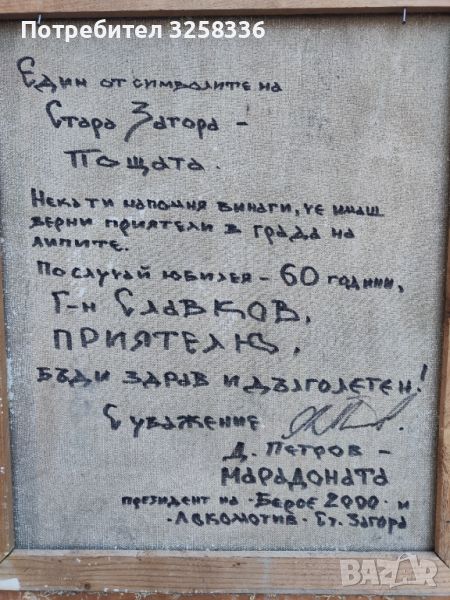 Потребител 3258336
Един от символите на
Стара Загора –
Пощата.
Нека ти напомня винаги, че имаш
верни приятели в града на
липите.
По случай юбилея – 60 години,
Г-н Славков,
ПРИЯТЕЛЮ,
бъди здрав и дълголетен!
С уважение
Д. Петров –
МАРАДОНАТА
президент на "Берое 2000" и
"Локомотив" Ст. Загора
BAZAR